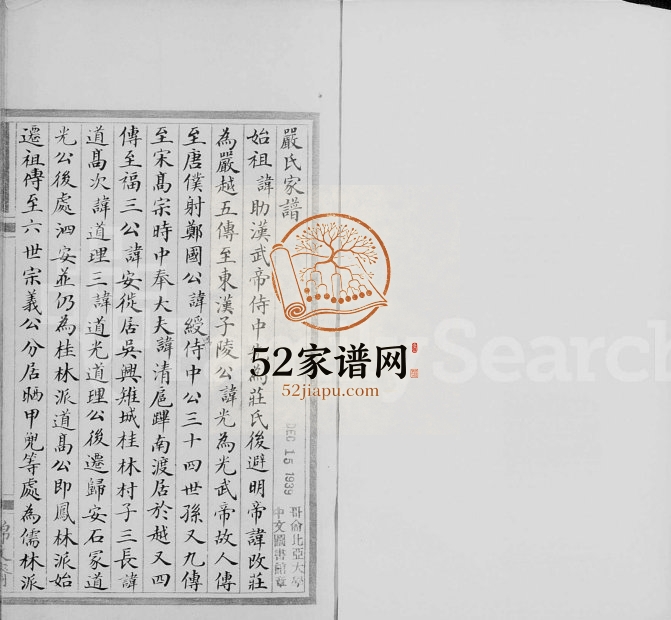 嚴氏家譜
始祖諱助漢武帝侍中 為莊氏後避明帝諱改莊
為嚴越五傳至東漢子陵公諱光為光武帝故人傳
至唐僕射鄭國公諱綬侍中公三十四世孫又九傳
至宋高宗時中奉大夫諱清扈蹕南渡居於越又四
傳至福三公諱安徙居吳興雉城桂林村子三長諱
道高次諱道理三諱道光道理公後遷歸安石冢道
光公後處泗安並仍為桂林派道高公即鳳林派始
遷祖傳至六世宗義公分居 甲 等處為儒林派
DEC 15 1939
哥倫比亞大學
中文圖書館章
52家谱网
52jiapu.com
Search